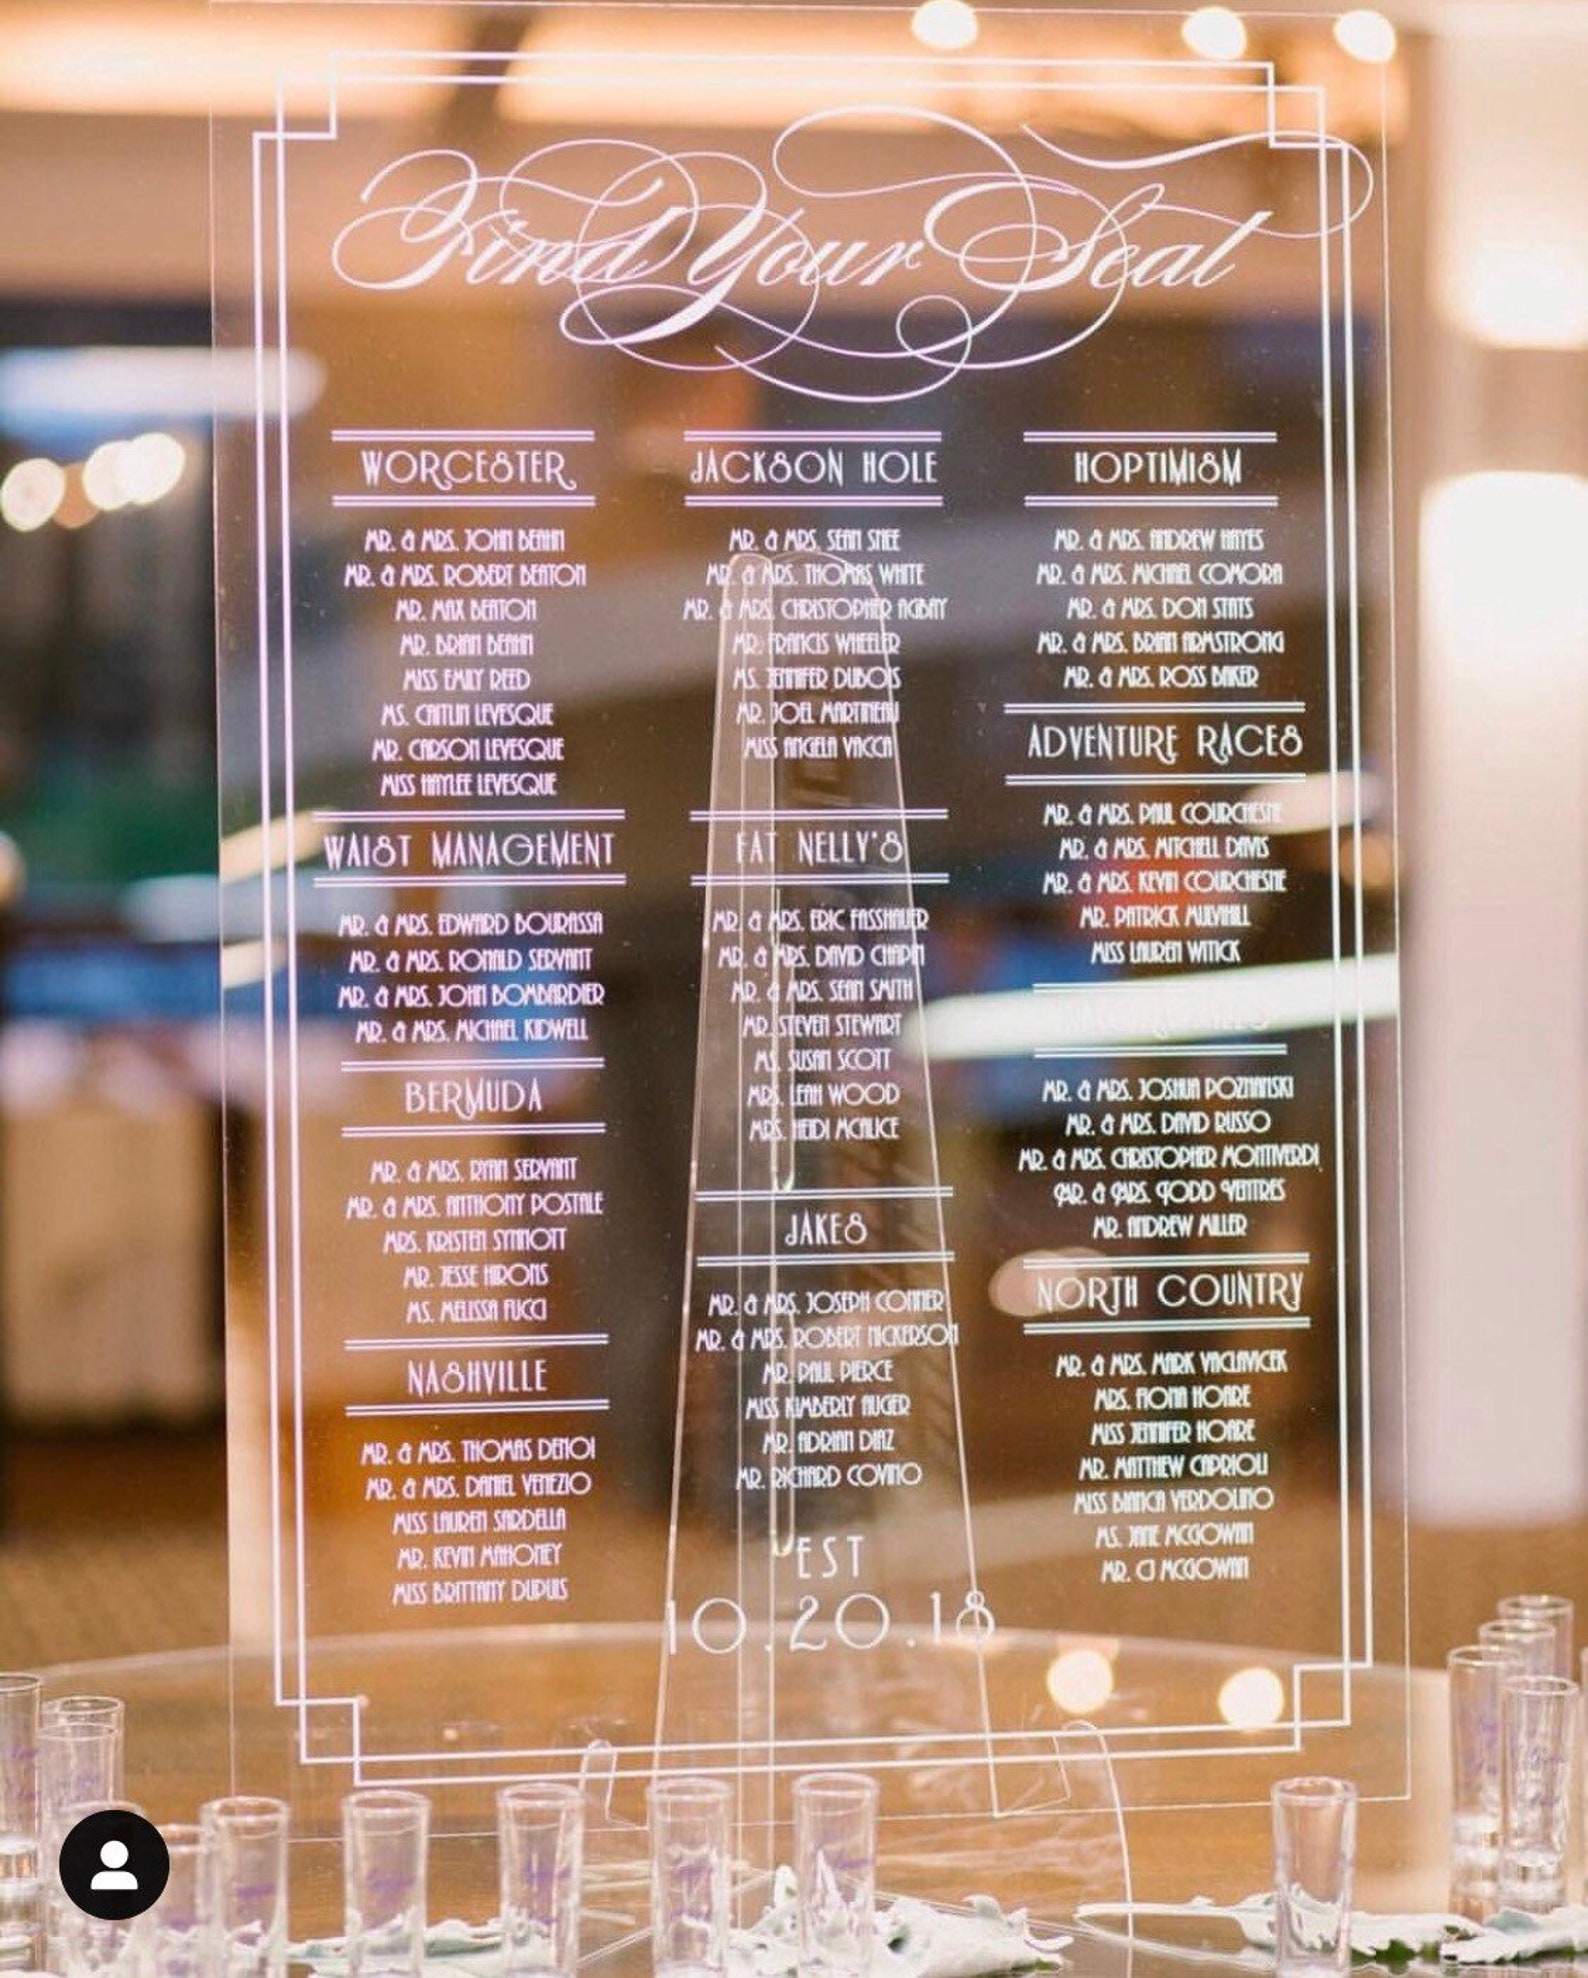 Find Your Seat
WORCESTER
MR. & MRS. JOHN BEAHN
MR. & MRS. ROBERT BEATON
MR. MAX BEATON
MR. BRIAN BEAHN
MISS EMILY REED
MS. CAITLIN LEVESQUE
MR. CARSON LEVESQUE
MISS HAYLEE LEVESQUE
WAIST MANAGEMENT
MR. & MRS. EDWARD BOURASSA
MR. & MRS. RONALD SERVANT
MR. & MRS. JOHN BOMBARDIER
MR. & MRS. MICHAEL KIDWELL
BERMUDA
MR. & MRS. RYAN SERVANT
MR. & MRS. ANTHONY POSTALE
MRS. KRISTEN SYNNOTT
MR. JESSE HIRONS
MS. MELISSA FUCCI
NASHVILLE
MR. & MRS. THOMAS DENOI
MR. & MRS. DANIEL VENEZIO
MISS LAUREN SARDELLA
MR. KEVIN MAHONEY
MISS BRITTANY DUPUIS
JACKSON HOLE
MR. & MRS. SEAN SNEE
MR. & MRS. THOMAS WHITE
MR. & MRS. CHRISTOPHER AGBAY
MR. FRANCIS WHEELER
MS. JENNIFER DUBOIS
MR. JOEL MARTINEAU
MISS ANGELA VACCA
FAT NELLY'S
MR. & MRS. ERIC FASSHAUER
MR. & MRS. DAVID CHAPIN
MR. & MRS. SEAN SMITH
MR. STEVEN STEWART
MS. SUSAN SCOTT
MRS. LEAH WOOD
MRS. HEIDI MCALICE
JAKES
MR. & MRS. JOSEPH CONNER
MR. & MRS. ROBERT NICKERSON
MR. PAUL PIERCE
MISS KIMBERLY AUGER
MR. ADRIAN DIAZ
MR. RICHARD COVINO
EST
10.20.18
HOPTIMISM
MR. & MRS. ANDREW HAYES
MR. & MRS. MICHAEL COMORA
MR. & MRS. DON STATS
MR. & MRS. BRIAN ARMSTRONG
MR. & MRS. ROSS BAKER
ADVENTURE RACES
MR. & MRS. PAUL COURCHESNE
MR. & MRS. MITCHELL DAVIS
MR. & MRS. KEVIN COURCHESNE
MR. PATRICK MULVAHILL
MISS LAUREN WITICK
MR. & MRS. JOSHUA POZNANSKI
MR. & MRS. DAVID RUSSO
MR. & MRS. CHRISTOPHER MONTIVERDI
MR. & MRS. TODD VENTRES
MR. ANDREW MILLER
NORTH COUNTRY
MR. & MRS. MARK VACLAVICEK
MRS. FIONA HOARE
MISS JENNIFER HOARE
MR. MATTHEW CAPRIOLI
MISS BIANCA VERDOLINO
MS. JANE MCGOWAN
MR. CJ MCGOWAN